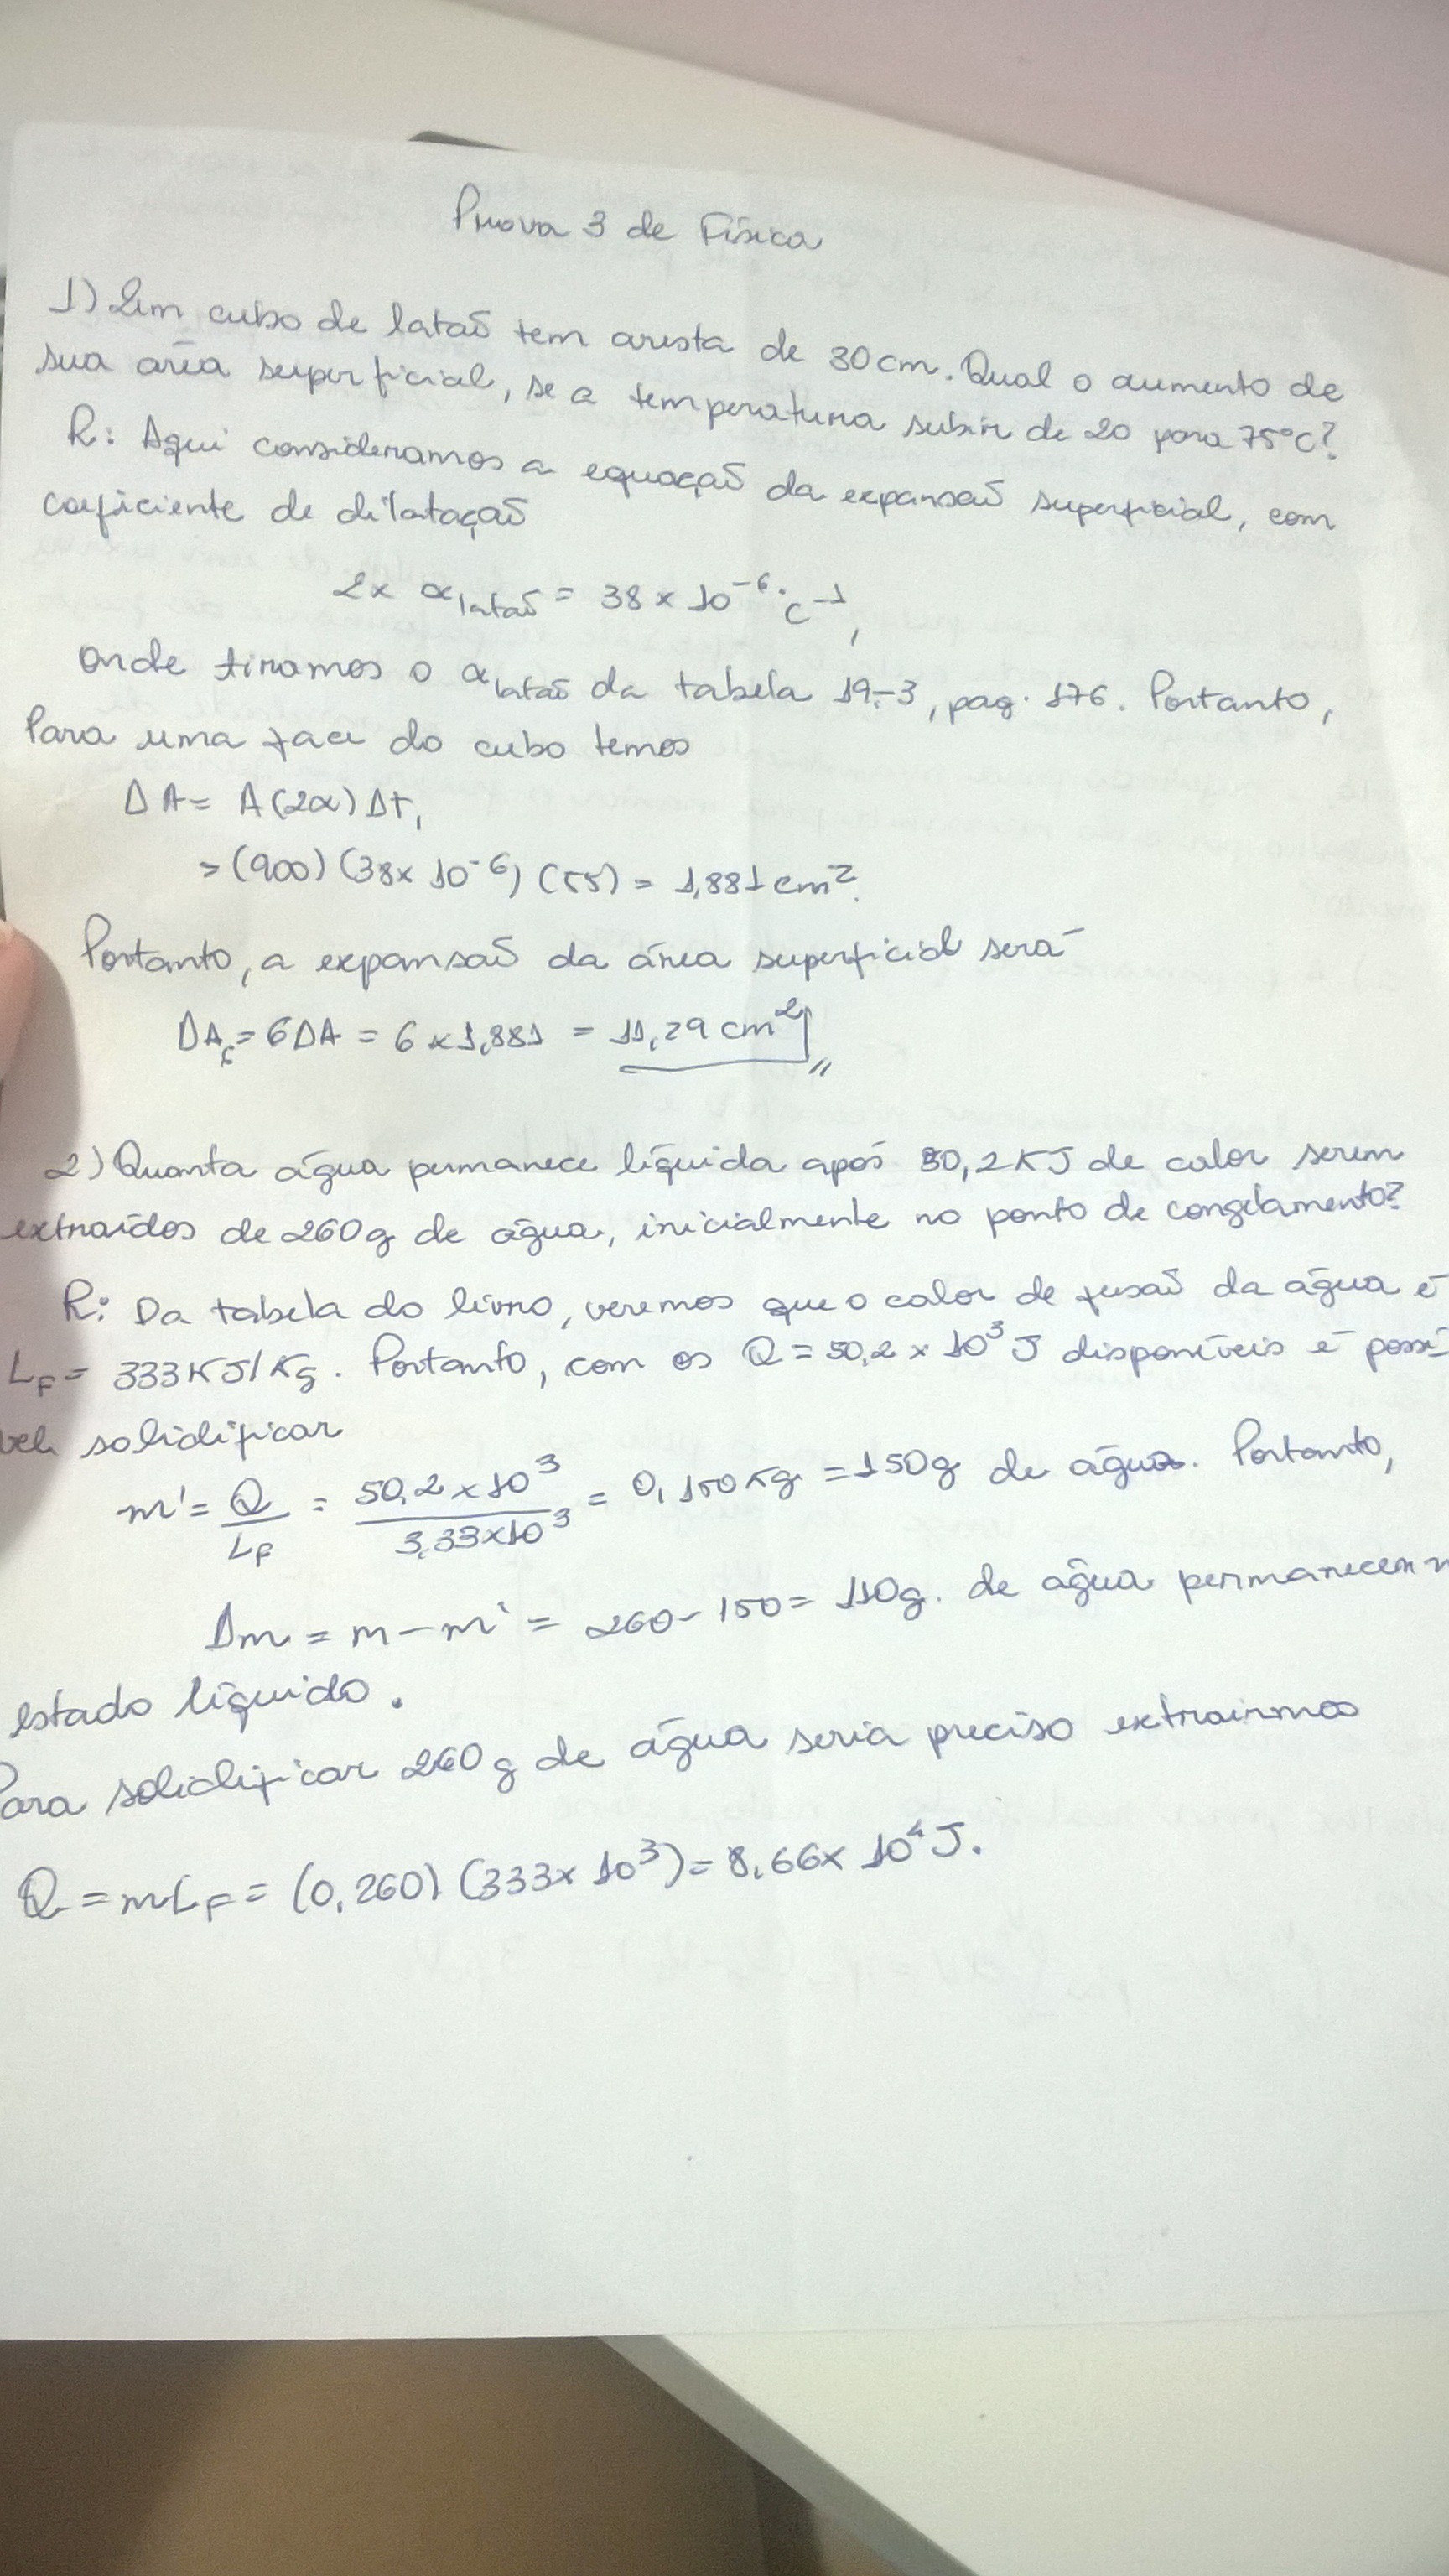 Prova 3 de Física
1) Um cubo de latão tem aresta de 30cm. Qual o aumento de
sua área superficial, se a temperatura subir de 20 para 75°C?
R: Aqui consideramos a equação da expansão superficial, com
coeficiente de dilatação
2 x α latão = 38 x 10⁻⁶ °C⁻¹,
onde tiramos o α latão da tabela 19-3, pag. 176. Portanto,
Para uma face do cubo temos
ΔA = A(2α)Δt,
= (900) (38x 10⁻⁶) (55) = 1,881 cm².
Portanto, a expansão da área superficial será
ΔAc = 6ΔA = 6 x 1,881 = 11,29 cm²
2) Quanta água permanece líquida após 50,2 KJ de calor serem
extraídos de 260g de água, inicialmente no ponto de congelamento?
R: Da tabela do livro, veremos que o calor de fusão da água é
LF = 333 KJ/Kg. Portanto, com os Q = 50,2 x 10³ J disponíveis é possí
vel solidificar
m' = Q/LF = 50,2 x 10³/3,33x10³ = 0,150 Kg = 150g de água. Portanto,
Δm = m - m' = 260 - 150 = 110g. de água permanecem n
estado líquido.
Para solidificar 260 g de água seria preciso extrairmos
Q = mLF = (0,260) (333x 10³) = 8,66x 10⁴ J.